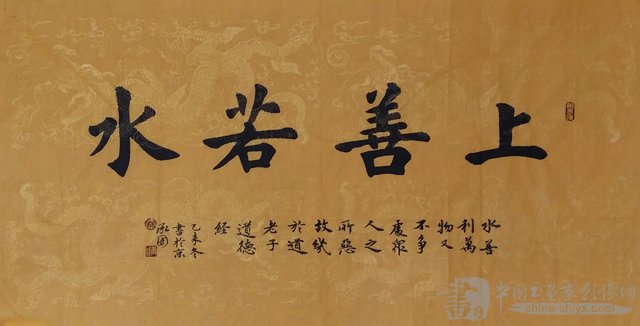 上善若水
水善
利萬
物又
不争
處眾
人之
所惡
故幾
於道
老子
道德
経
乙未冬
書於京
china-shjyx.com